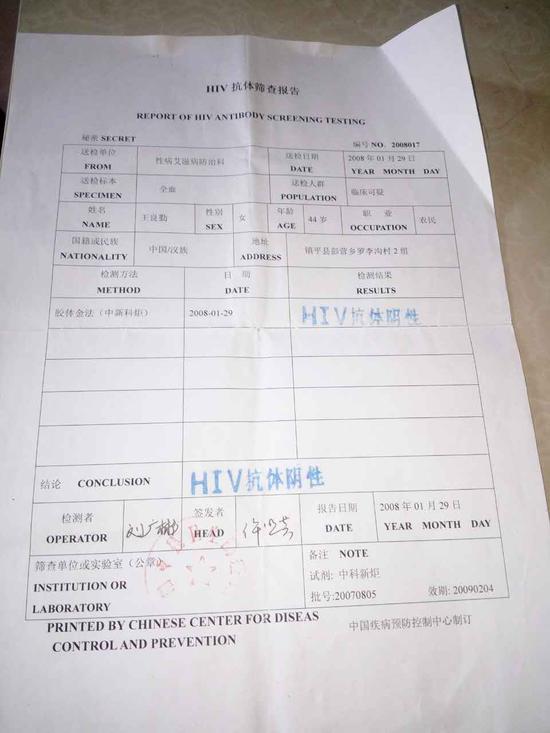 HIV 抗体筛查报告
REPORT OF HIV ANTIBODY SCREENING TESTING
秘密 SECRET 编号 NO. 2008017
送检单位 性病艾滋病防治科 送检日期 2008 年 01 月 29 日
FROM DATE YEAR MONTH DAY
送检标本 全血 送检人群 临床可疑
SPECIMEN POPULATION
姓名 王良勤 性别 女 年龄 44 岁 职 业 农民
NAME SEX AGE OCCUPATION
国籍或民族 中国/汉族 地址 镇平县彭营乡罗李沟村 2 组
NATIONALITY ADDRESS
检测方法 日 期 检测结果
METHOD DATE RESULTS
胶体金法（中新科炬） 2008-01-29 HIV抗体阴性
结论 CONCLUSION HIV抗体阴性
检测者 签发者 报告日期 2008 年 01 月 29 日
OPERATOR HEAD DATE YEAR MONTH DAY
筛查单位或实验室（公章） 备注 NOTE
INSTITUTION OR 试剂: 中科新炬
LABORATORY 批号:20070805 效期: 20090204
PRINTED BY CHINESE CENTER FOR DISEAS 中国疾病预防控制中心制订
CONTROL AND PREVENTION